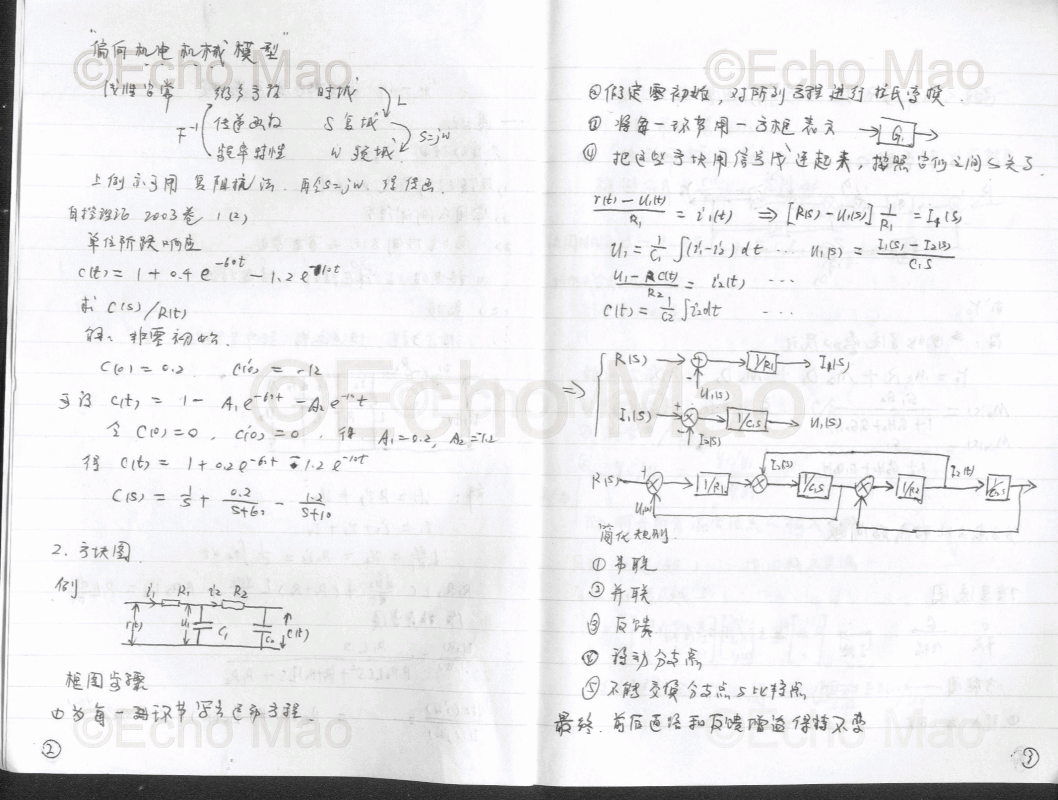 "偏向机电机械模型"
线性定常 微分方程 时域
L
F⁻¹ 传递函数 S复域
S=jω
频率特性 ω 频域
上例亦可用 复阻抗法. 再令S=jω 得
自控理论 2003卷 1(2)
单位阶跃响应
C(t) = 1 + 0.4 e^{-60t} - 1.2 e^{-10t}
求 C(S)/R(t)
解: 非零初始.
C(0) = 0.2 Ċ(0) = -12
可设 C(t) = 1 - A₁e^{-60t} - A₂e^{-10t}
令 C(0)=0, Ċ(0)=0, 得 A₁=0.2, A₂=-1.2
得 C(t) = 1 + 0.2e^{-60t} - 1.2e^{-10t}
C(S) = 1/S + 0.2/(S+60) - 1.2/(S+10)
2. 方块图.
例
i₁ R₁ i₂ R₂
r(t) U₁ C₁ C₂ C(t)
框图步骤
① 为每一环节写出运动方程.
②
② 假定零初始, 对所列方程进行拉氏变换.
③ 将每一环节用一方框表示 G
④ 把这些方块用信号线连起来, 按照它们之间的关系.
(r(t) - U₁(t))/R₁ = i₁(t) ⇒ [R(S) - U₁(S)] 1/R₁ = I₁(S)
U₁ = 1/C₁ ∫(i₁-i₂) dt ... U₁(S) = (I₁(S) - I₂(S))/(C₁S)
(U₁ - C(t))/R₂ = i₂(t) ...
C(t) = 1/C₂ ∫i₂dt ...
⇒ R(S) + - 1/R₁ I₁(S)
U₁(S)
I₁(S) + - 1/C₁S U₁(S)
I₂(S)
I₂(S) I₂(t)
R(S) + 1/R₁ 1/C₁S 1/R₂ 1/C₂S
简化规则
① 串联
② 并联
③ 反馈
④ 移动分支点
⑤ 不能交换分支点与比较点
最终. 前向通路和反馈增益保持不变
③
©Echo Mao
©Echo Mao
©Echo Mao
©Echo Mao
©Echo Mao